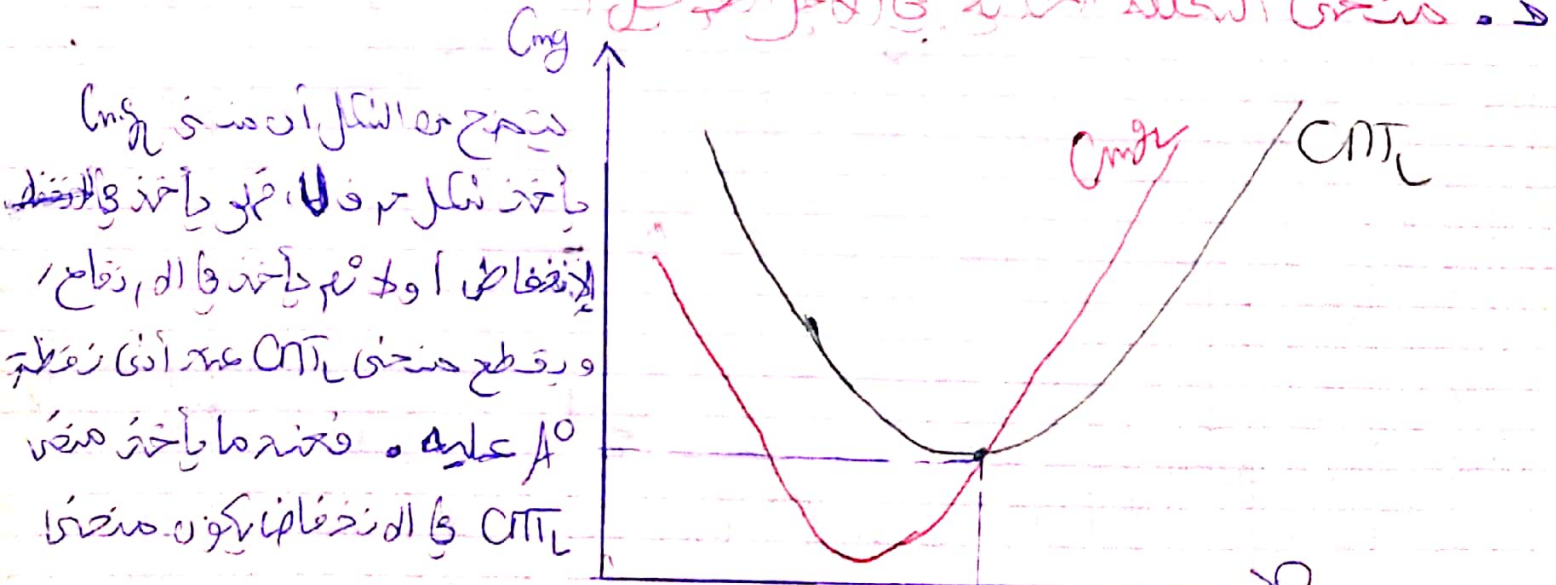 ط. منحنى التكلفة الحدية في الأجل الطويل:
Cmg
يتضح من الشكل أن منحنى CmgL
يأخذ شكل حرف U، فهو يأخذ في
الإنخفاض أولا ثم يأخذ في الارتفاع،
ويقطع منحنى CMTL عند أدنى نقطة
A° عليه. فعندما يأخذ منحنى
CMTL في الانخفاض يكون منحنى
CmgL
CMTL
Q